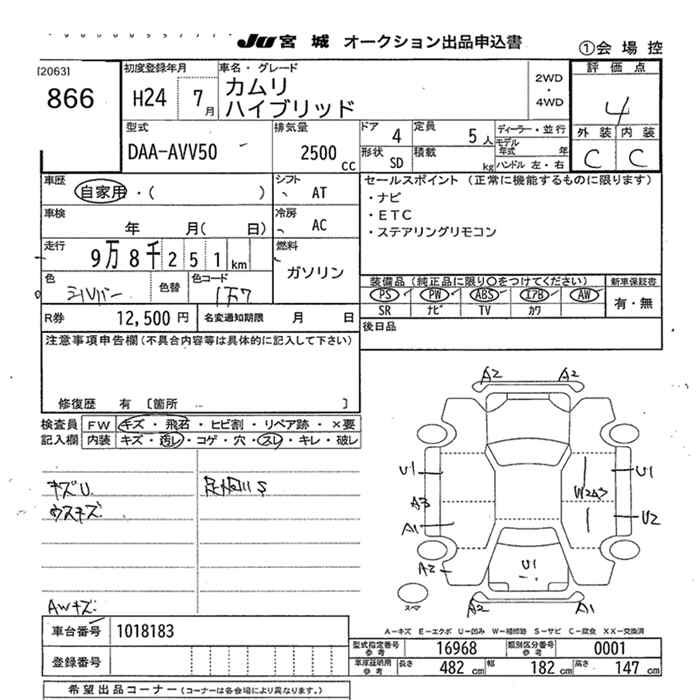 JU 宮城 オークション出品申込書
①会場控
[2063]
866
初度登録年月
H24 7月
車名・グレード
カムリ
ハイブリッド
2WD
・
4WD
評価点
4
外装 内装
C C
型式
DAA-AVV50
排気量
2500 CC
ドア 4
定員 5人
ディーラー・並行
モデル年式 年
形状 SD
積載 kg
ハンドル 左・右
車歴
自家用・( )
シフト AT
セールスポイント (正常に機能するものに限ります)
・ナビ
・ETC
・ステアリングリモコン
車検
年 月( 日)
冷房 AC
走行
9万8千251km
燃料
ガソリン
色
シルバー
色替
色コード
1F7
装備品 (純正品に限り○をつけてください)
新車保証書
PS PW ABS エアB AW
有・無
SR ナビ TV カワ
R券 12,500円
名変通知期限 月 日
後日品
注意事項申告欄(不具合内容等は具体的に記入して下さい)
修復歴 有 [箇所 ]
検査員
記入欄
FW キズ・飛石・ヒビ割・リペア跡・×要
内装 キズ・汚レ・コゲ・穴・スレ・キレ・破レ
キズU.
ウスキズ
AWキズ.
A2 A2
U1 U1
A3 W2A3
A1 U2
A2 U1
スペア
A2 A1
A-キズ E-エクボ U-凹み W-補修跡 S-サビ C-腐食 XX-交換済
車台番号 1018183
登録番号
型式指定番号 参考 16968
類別区分番号 参考 0001
車庫証明用 参考 長さ 482 cm 幅 182 cm 高さ 147 cm
希望出品コーナー (コーナーは各会場により異なります。)